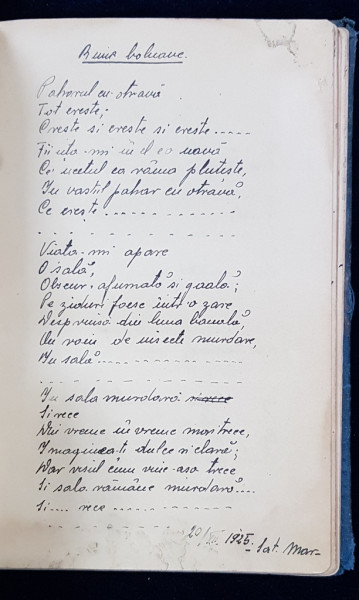 Rime bolnave.
Paharul cu otravă
Tot creste;
Creste si creste si creste.....
Fii uta-mi în el ca o navă
Ce încetul ca râma pluteste,
In vastul pahar cu otravă,
Ce creste..... - - - - - -
- - - - - - - - - - -
Viata-mi apare
O sală,
Obscură, afumată si goală;
Pe ziduri foesc într'o zare
Desprinsă din luna banală,
Un roiu de insecte murdare,
In sală.... - - - - - -
- - - - - - - - - - -
In sala murdară si rece
Si rece
Din vreme în vreme mai trece,
Imaginea-ti dulce si clară;
Dar visul cum vine asa trece
Si sala rămâne murdară....
Si.... rece - - - - - - -
- - - - - - - - - -
20/ 1925. Sat. Mar-